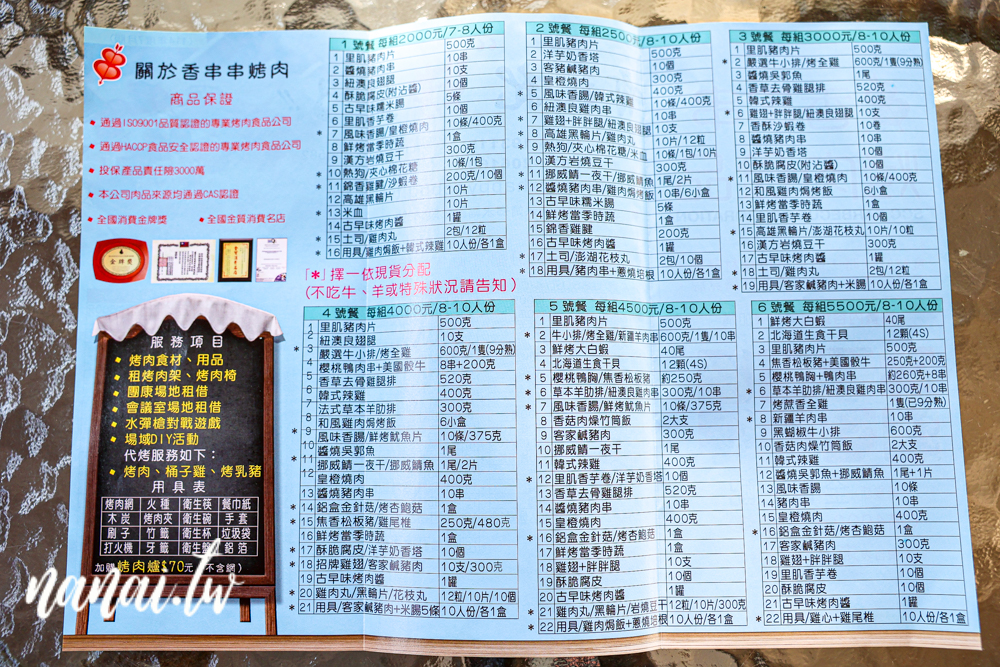 關於香串串烤肉
商品保證
通過ISO9001品質認證的專業烤肉食品公司
通過HACCP食品安全認證的專業烤肉食品公司
投保產品責任險3000萬
本公司肉品來源均通過CAS認證
全國消費金牌獎
全國金質消費名店
1 號餐 每組2000元/7-8人份
1 里肌豬肉片 500克
2 醬燒豬肉串 10串
3 紐澳良翅腿 10支
4 酥脆腐皮(附沾醬) 10個
5 古早味糯米腸 5條
6 里肌香芋卷 10個
* 7 風味香腸/皇橙燒肉 10條/400克
8 鮮烤當季時蔬 1盒
9 漢方岩燒豆干 300克
* 10 熱狗/夾心棉花糖 10條/1包
* 11 錦香雞腱/沙蝦卷 200克/10個
12 高雄黑輪片 10片
13 米血 10片
14 古早味烤肉醬 1罐
* 15 土司/雞肉丸 2包/12粒
* 16 用具/雞肉焗飯+韓式辣雞 10人份/各1盒
2 號餐 每組2500元/8-10人份
1 里肌豬肉片 500克
2 洋芋奶香塔 10個
3 客豬鹹豬肉 300克
4 皇橙燒肉 400克
* 5 風味香腸/韓式辣雞 10條/400克
6 紐澳良雞肉串 10串
* 7 雞翅+胖胖腿/紐澳良翅腿 10支
* 8 高雄黑輪片/雞肉丸 10片/12粒
* 9 熱狗/夾心棉花糖/米血 10條/1包/10片
10 漢方岩燒豆干 300克
* 11 挪威鯖一夜干/挪威鯖魚 1尾/2片
* 12 醬燒豬肉串/雞肉焗烤飯 10串/6小盒
13 古早味糯米腸 5條
14 鮮烤當季時蔬 1盒
15 錦香雞腱 200克
16 古早味烤肉醬 1罐
* 17 土司/澎湖花枝丸 2包/10個
* 18 用具/豬肉串+蔥燒培根 10人份/各1盒
3 號餐 每組3000元/8-10人份
1 里肌豬肉片 500克
* 2 嚴選牛小排/烤全雞 600克/1隻(9分熟)
3 醬燒吳郭魚 1尾
4 香草去骨雞腿排 520克
5 韓式辣雞 400克
* 6 雞翅+胖胖腿/紐澳良翅腿 10支
7 香酥沙蝦卷 10卷
8 醬燒豬肉串 10串
9 洋芋奶香塔 10個
10 酥脆腐皮(附沾醬) 10個
* 11 風味香腸/皇橙燒肉 10條/400克
12 和風雞肉焗飯 6小盒
13 鮮烤當季時蔬 1盒
14 里肌香芋卷 10個
* 15 高雄黑輪片/澎湖花枝丸 10片/10粒
16 漢方岩燒豆干 300克
17 古早味烤肉醬 1罐
* 18 土司/雞肉丸 2包/12粒
* 19 用具/客家鹹豬肉+米腸 10人份/各1盒
「*」擇一依現貨分配
(不吃牛、羊或特殊狀況請告知)
4 號餐 每組4000元/8-10人份
1 里肌豬肉片 500克
2 紐澳良翅腿 10支
* 3 嚴選牛小排/烤全雞 600克/1隻(9分熟)
4 櫻桃鴨肉串+美國骰牛 8串+200克
5 香草去骨雞腿排 520克
6 韓式辣雞 400克
7 法式草本羊肋排 300克
8 和風雞肉焗飯 6小盒
* 9 風味香腸/鮮烤魷魚片 10條/375克
10 醬燒吳郭魚 1尾
* 11 挪威鯖一夜干/挪威鯖魚 1尾/2片
12 皇橙燒肉 400克
13 醬燒豬肉串 10串
* 14 鋁盒金針菇/烤杏鮑菇 1盒
* 15 焦香松板豬/雞尾椎 250克/480克
16 鮮烤當季時蔬 1盒
* 17 酥脆腐皮/洋芋奶香塔 10個
* 18 招牌雞翅/客家鹹豬肉 10支/300克
19 古早味烤肉醬 1罐
* 20 雞肉丸/黑輪片/花枝丸 12粒/10片/10個
* 21 用具/客家鹹豬肉+米腸5條 10人份/各1盒
5 號餐 每組4500元/8-10人份
1 里肌豬肉片 500克
* 2 牛小排/烤全雞/新疆羊肉串 600克/1隻/10串
3 鮮烤大白蝦 40尾
4 北海道生食干貝 12顆(4S)
* 5 櫻桃鴨胸/焦香松板豬 約250克
* 6 草本羊肋排/紐澳良雞肉串 300克/10串
* 7 風味香腸/鮮烤魷魚片 10條/375克
8 香菇肉燥竹筒飯 2大支
9 客家鹹豬肉 300克
10 挪威鯖一夜干 1尾
11 韓式辣雞 400克
* 12 里肌香芋卷/洋芋奶香塔 10個
13 香草去骨雞腿排 520克
14 醬燒豬肉串 10串
15 皇橙燒肉 400克
* 16 鋁盒金針菇/烤杏鮑菇 1盒
17 鮮烤當季時蔬 1盒
18 雞翅+胖胖腿 10支
19 酥脆腐皮 10個
20 古早味烤肉醬 1罐
* 21 雞肉丸/黑輪片/岩燒豆干 12粒/10片/300克
* 22 用具/雞肉焗飯+蔥燒培根 10人份/各1盒
6 號餐 每組5500元/8-10人份
1 鮮烤大白蝦 40尾
2 北海道生食干貝 12顆(4S)
3 里肌豬肉片 500克
4 焦香松板豬+美國骰牛 250克+200克
5 櫻桃鴨胸+鴨肉串 約260克+8串
* 6 草本羊肋排/紐澳良雞肉串 300克/10串
7 烤蔗香全雞 1隻(已9分熟)
8 新疆羊肉串 10串
9 黑蝴椒牛小排 600克
10 香菇肉燥竹筒飯 2大支
11 韓式辣雞 400克
12 醬燒吳郭魚+挪威鯖魚 1尾+1片
13 風味香腸 10條
14 豬肉串 10串
15 皇橙燒肉 400克
* 16 鋁盒金針菇/烤杏鮑菇 1盒
17 客家鹹豬肉 300克
18 雞翅+胖胖腿 10支
19 里肌香芋卷 10個
20 酥脆腐皮 10個
21 古早味烤肉醬 1罐
* 22 用具/雞心+雞尾椎 10人份/各1盒
服務項目
烤肉食材、用品
租烤肉架、烤肉椅
團康場地租借
會議室場地租借
水彈槍對戰遊戲
場域DIY活動
代烤服務如下：
烤肉、桶子雞、烤乳豬
用具表
烤肉網 火種 衛生筷 餐巾紙
木炭 烤肉夾 衛生碗 手套
刷子 竹籤 衛生杯 垃圾袋
打火機 牙籤 鋁箔
加購烤肉爐$70元(不含網)
nanai.tw